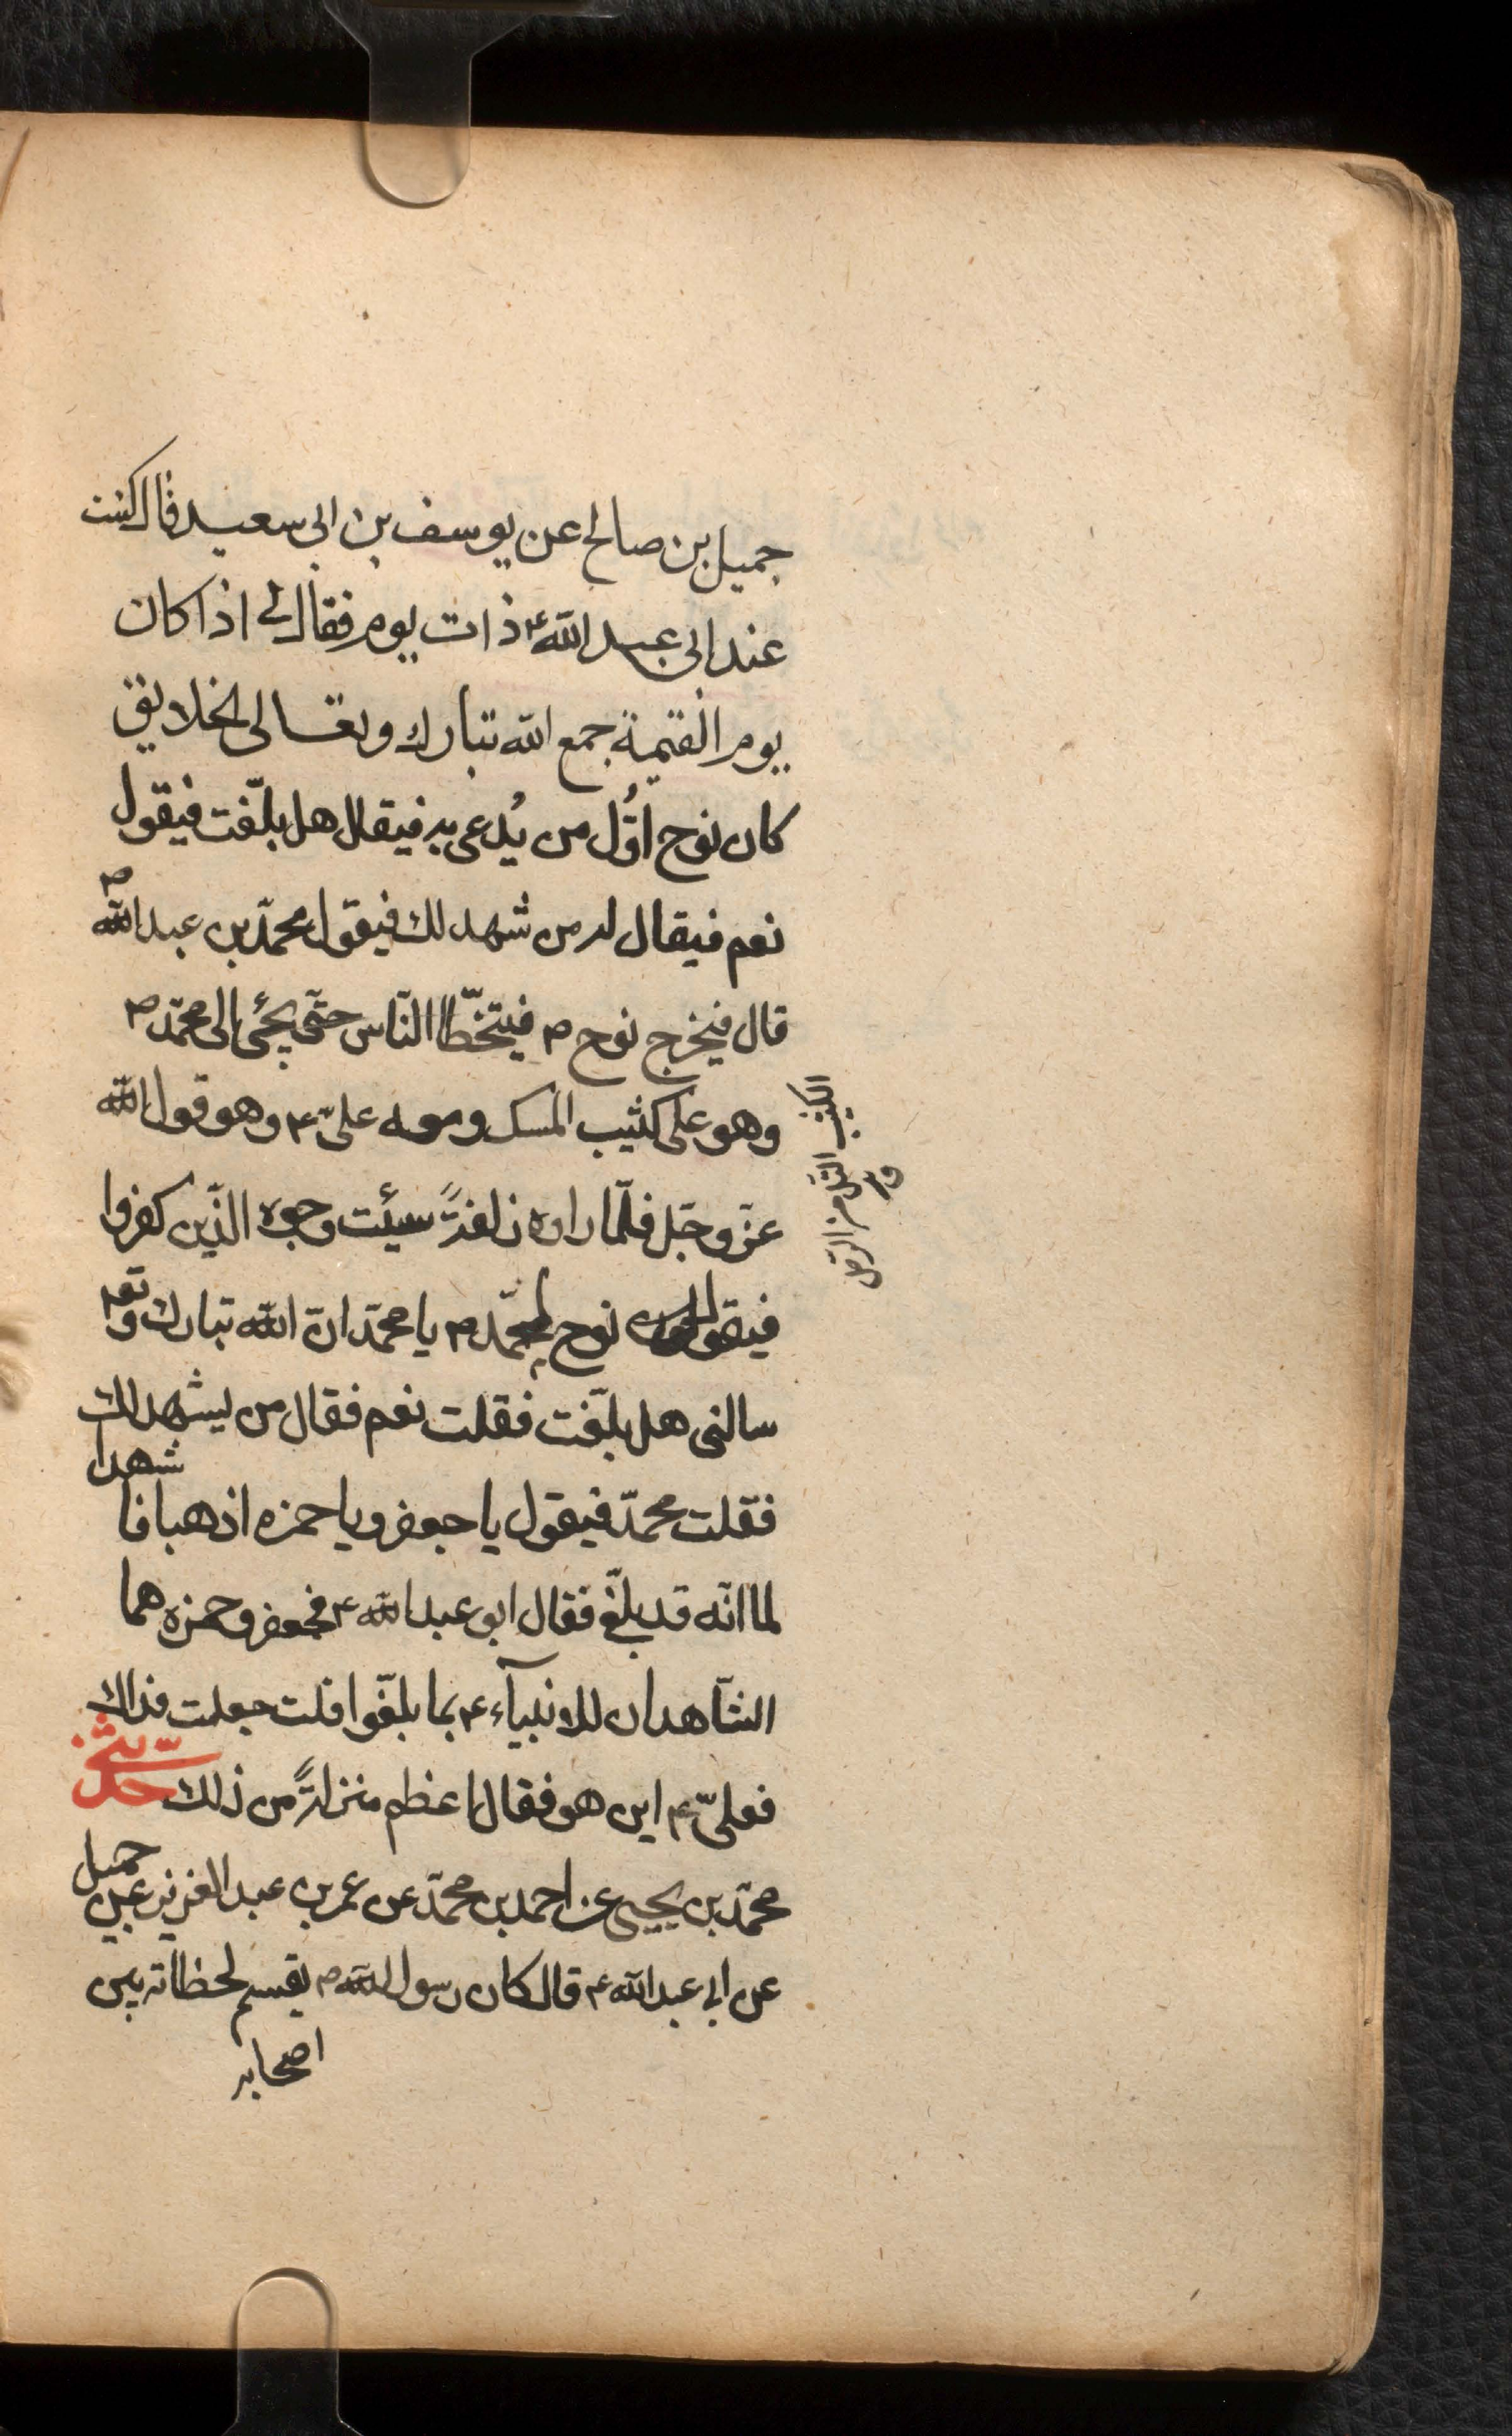 جميل بن صالح عن يوسف بن ابى سعيد قال كنت
عند ابى عبد الله ع ذات يوم فقال لى اذا كان
يوم القيمة جمع الله تبارك وتعالى الخلايق
كان نوح اوّل من يُدعى به فيقال هل بلّغت فيقول
نعم فيقال له من شهد لك فيقول محمّد بن عبد الله ص
قال فيخرج نوح ص فيتخطّا الناس حتّى يجئ الى محمّد ص
وهو على كثيب المسك ومعه علىّ ع وهو قول الله
عزّ وجلّ فلمّا راوه زلفةً سيئت وجوه الذّين كفروا
فيقول نوح لمحمّد ص يا محمّد انّ الله تبارك وتعم
سالنى هل بلّغت فقلت نعم فقال من يشهد لك
فقلت محمّد فيقول يا جعفر ويا حمزه اذهبا فاشهدا
لما انّه قد بلّغ فقال ابو عبد الله ع فجعفر وحمزه هما
الشّاهدان للانبيآء ع بما بلّغوا قلت جعلت فداك
فعلىّ ع اين هو فقال اعظم منزلةً من ذلك
محمّد بن يحيى عن احمد بن محمّد عن عمر بن عبد العزيز عن جميل
عن ابى عبد الله ع قال كان رسول الله ص يقسم لحظاته بين
اصحابه
الكثيب التل من الرمل
ق